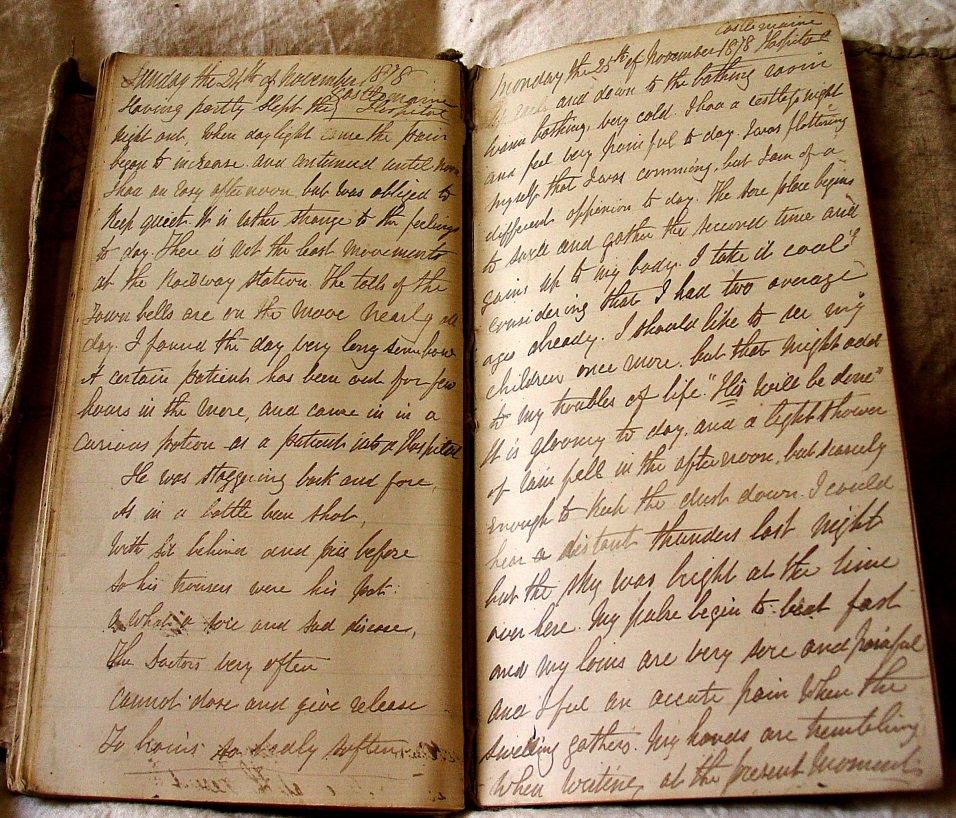 Sunday the 24th of November 1878
Castlemaine
Having partly slept the Hospital
night out, when daylight came the pain
began to increase and continued until noon
I had an easy afternoon but was obliged to
keep quiet. It is rather strange to the feelings
to day there is not the least movements
at the Railway Station. The tolls of the
Town bells are on the move nearly all
day. I found the day very long somehow
A certain patient has been out for few
hours in the more, and came in in a
curious potion as a patient into a Hospital
He was staggering back and fore,
As in a battle been shot,
With behind and before
So his trousers were his pot.
what a sore and sad disease,
The Doctors very often
cannot dose and give release
To brains so badly soften
Castlemaine
Monday the 25th of November 1878 Hospital
early and down to the bathing room
warm bathing, very cold. I had a restless night
and feel very painful to day. I was flattering
myself that I was comming, but I am of a
different oppinion to day. The sore place begins
to swell and gather the second time and
gains up to my body. I take it cool
considering that I had two average
ages already. I should like to see my
children once more. but that might add
to my troubles of life. "His will be done"
It is gloomy to day, and a light shower
of rain fell in the afternoon, but scarcely
enough to keep the dust down. I could
hear a distant thunders last night
but the sky was bright at the time
over here. My pulse begin to beat fast
and my loins are very sore and painful
and I feel an accute pain when the
swelling gathers. My hands are trembling
when writing at the present moment